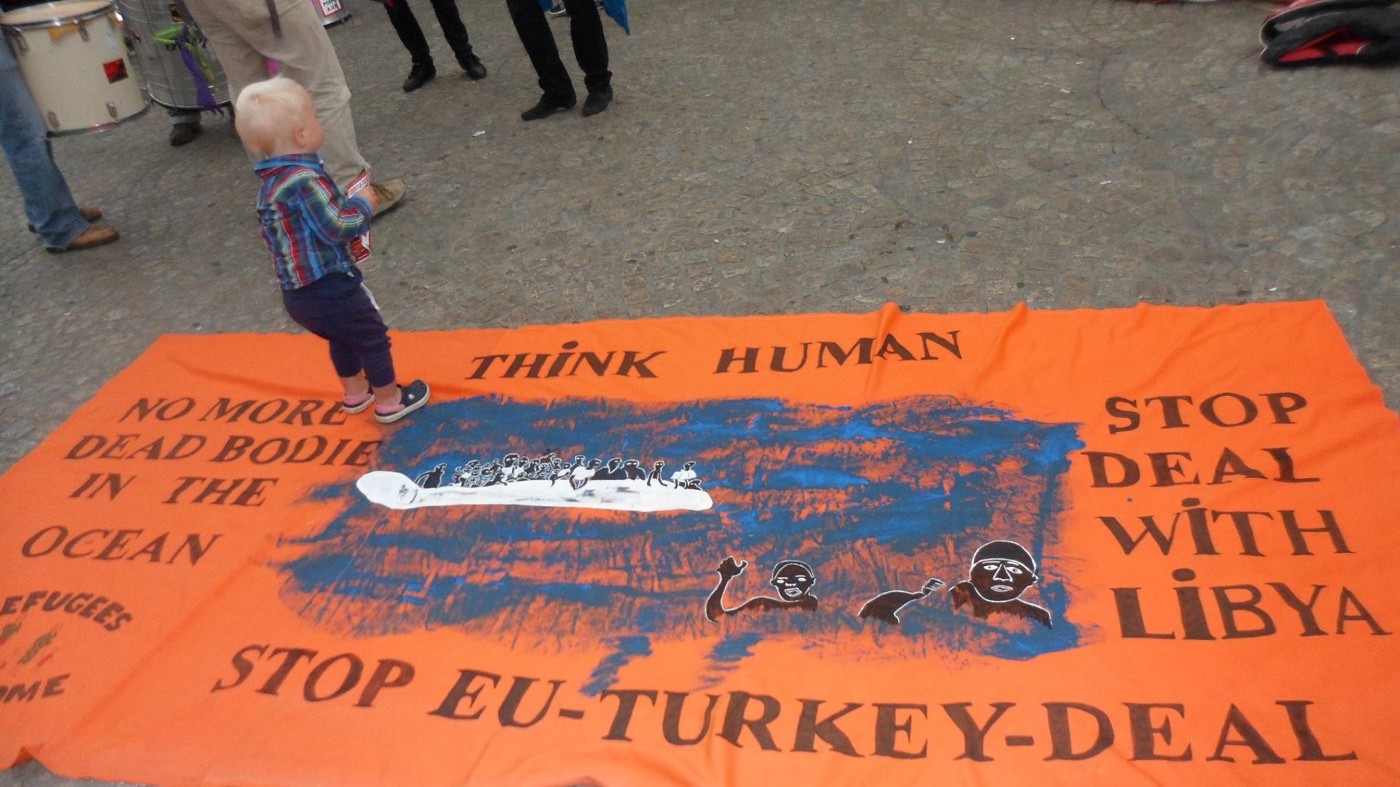 THiNK HUMAN
NO MORE
DEAD BODIE
IN THE
OCEAN
STOP
DEAL
WiTH
LiBYA
EFUGEES
OME
STOP EU-TURKEY-DEAL